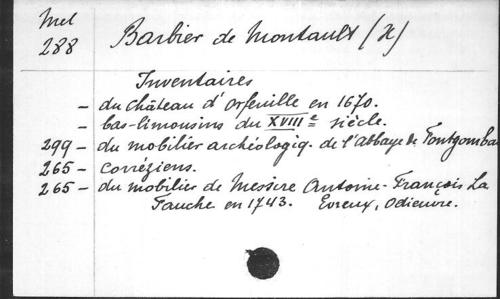 Mel
288
Barbier de Montault (X)
Inventaires
- du château d'Orfeuille en 1670.
- bas-limousins du XVIIIe siècle.
299 - du mobilier archéologiq. de l'Abbaye de Fontgombau
265 - corréziens.
265 - du mobilier de Messire Antoine-François La
Fauche en 1743. Evreux, Odieuvre.